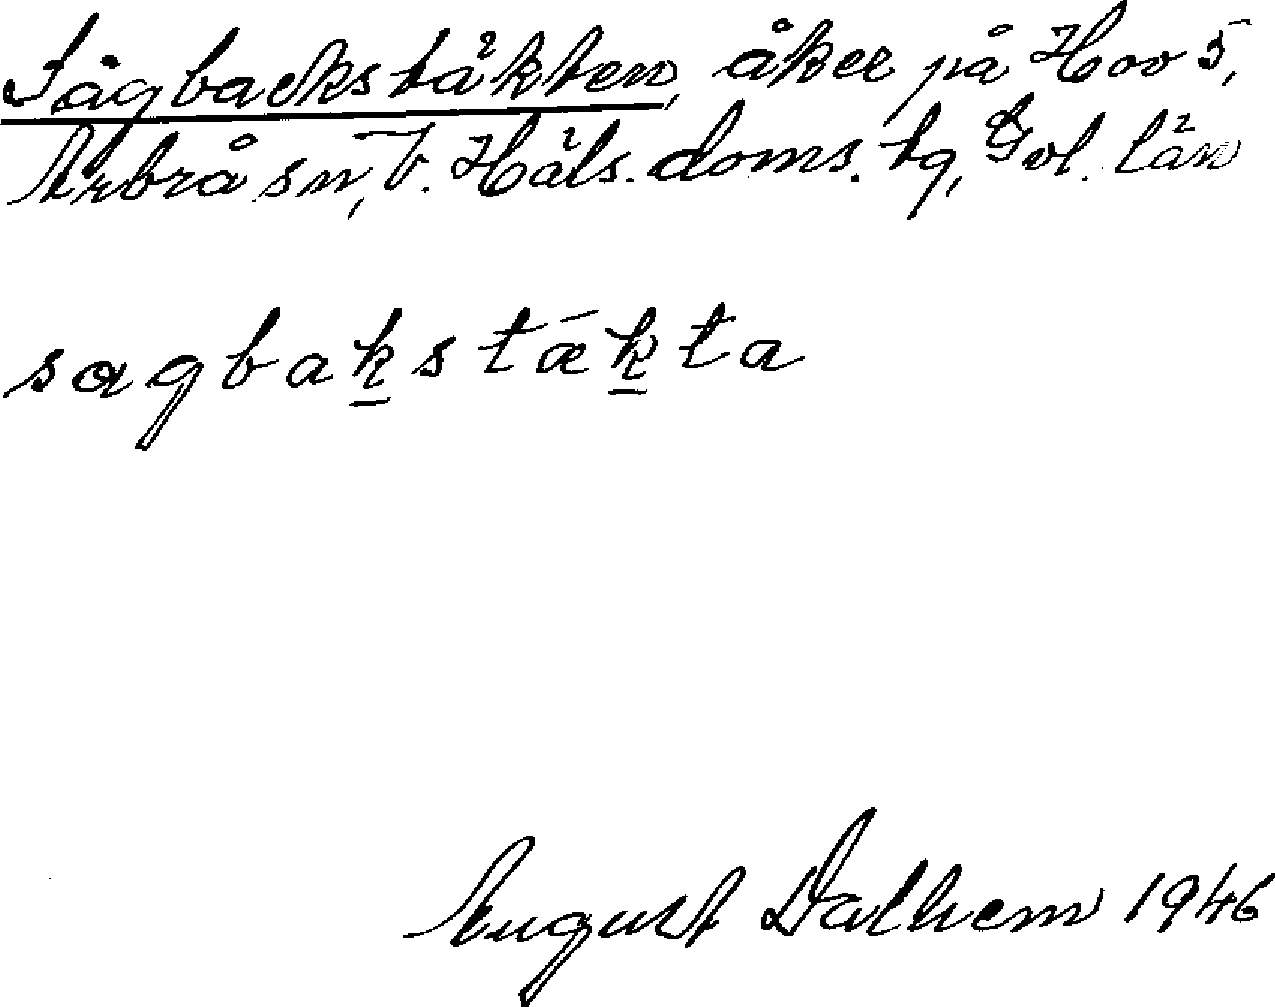 Sågbackstäkten, åker på Hov 5,
Arbrå sn, V. Häls. doms. tg, Gvl. län
sagbakstækta
August Dalhem 1946